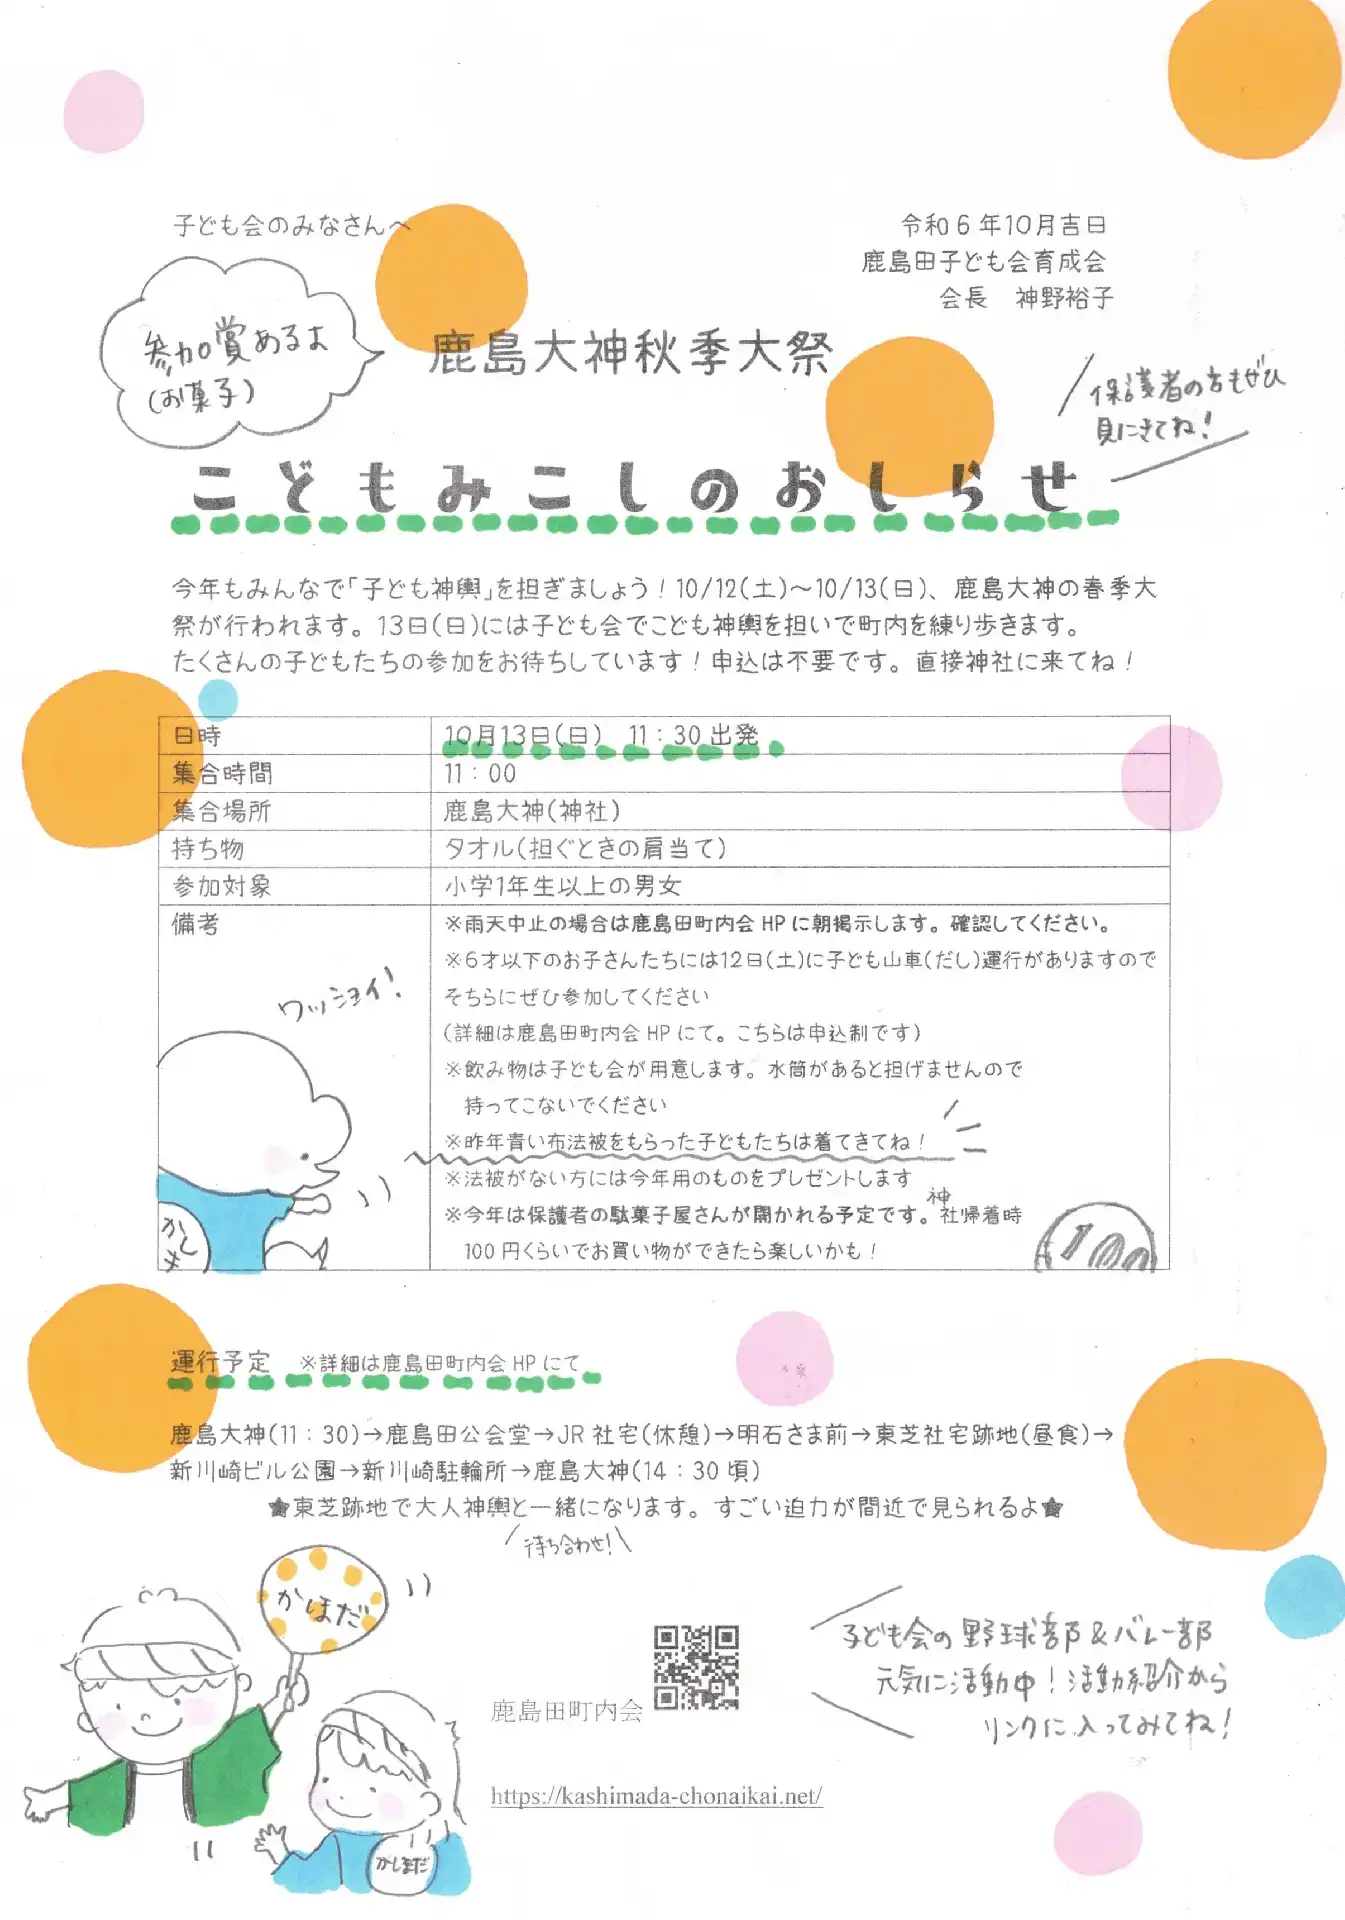 子ども会のみなさんへ
令和6年10月吉日
鹿島田子ども会育成会
会長　神野裕子
参加賞あるよ
(お菓子)
鹿島大神秋季大祭
保護者の方もぜひ
見にきてね!
こどもみこしのおしらせ
今年もみんなで「子ども神輿」を担ぎましょう!10/12(土)～10/13(日)、鹿島大神の春季大
祭が行われます。13日(日)には子ども会でこども神輿を担いで町内を練り歩きます。
たくさんの子どもたちの参加をお待ちしています!申込は不要です。直接神社に来てね!
日時　10月13日(日)　11:30出発
集合時間　11:00
集合場所　鹿島大神(神社)
持ち物　タオル(担ぐときの肩当て)
参加対象　小学1年生以上の男女
備考　※雨天中止の場合は鹿島田町内会HPに朝掲示します。確認してください。
※6才以下のお子さんたちには12日(土)に子ども山車(だし)運行がありますので
そちらにぜひ参加してください
(詳細は鹿島田町内会HPにて。こちらは申込制です)
※飲み物は子ども会が用意します。水筒があると担げませんので
持ってこないでください
※昨年青い布法被をもらった子どもたちは着てきてね!
※法被がない方には今年用のものをプレゼントします
※今年は保護者の駄菓子屋さんが開かれる予定です。神社帰着時
100円くらいでお買い物ができたら楽しいかも!
ワッショイ!
かしま
100
運行予定　※詳細は鹿島田町内会HPにて
鹿島大神(11:30)→鹿島田公会堂→JR社宅(休憩)→明石さま前→東芝社宅跡地(昼食)→
新川崎ビル公園→新川崎駐輪所→鹿島大神(14:30頃)
★東芝跡地で大人神輿と一緒になります。すごい迫力が間近で見られるよ★
待ち合わせ!
かほまだ
子ども会の野球部&バレー部
元気に活動中!活動紹介から
リンクに入ってみてね!
鹿島田町内会
https://kashimada-chonaikai.net/
かしまだ